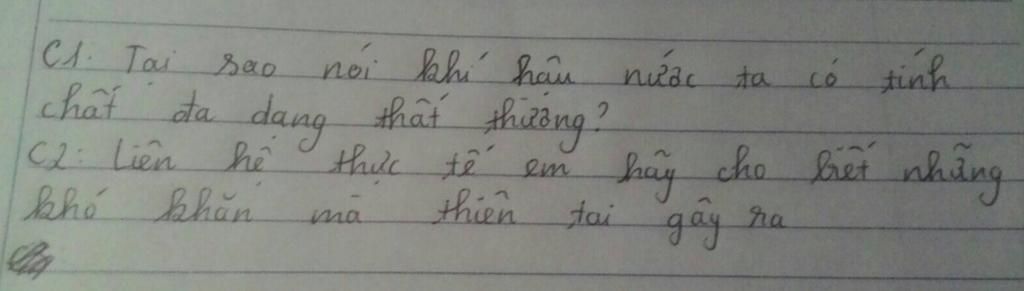 C1. Tại sao nói khí hậu nước ta có tính
chất đa dạng thất thường?
C2: Liên hệ thực tế em hãy cho biết những
khó khăn mà thiên tai gây ra